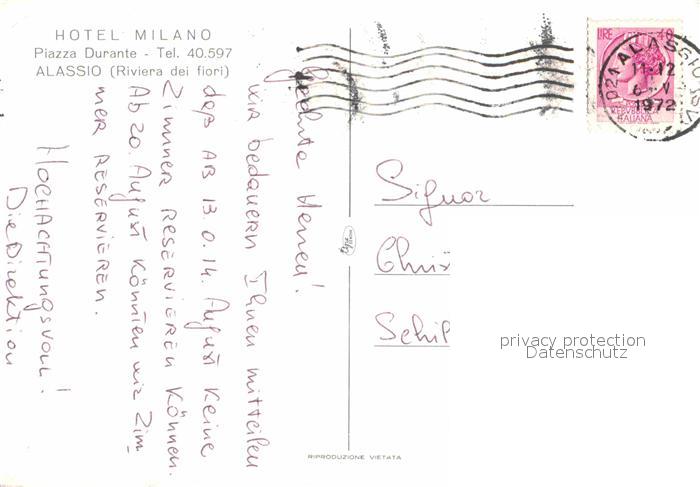 HOTEL MILANO
Piazza Durante - Tel. 40.597
ALASSIO (Riviera dei fiori)
Geehrte Herren!
wir bedauern Ihnen mitteilen
daß AB 13 o. 14. August keine
Zimmer RESERVIEREN Können.
Ab 20. August Könnten wir Zim
mer RESERVIEREN.
HOCHACHTungsvoll!
Die Direktion
LIRE 40
ITALIANA
ALASSIO
11-12
6-V
1972
Signor
Chris
Schil
privacy protection
Datenschutz
RIPRODUZIONE VIETATA